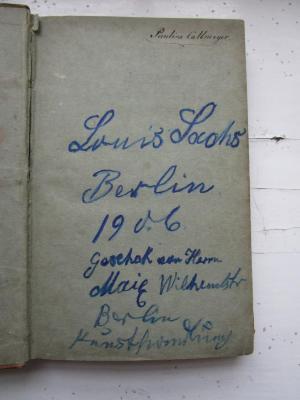 Pauline Callmeyer
Louis Sachs
Berlin
1906.
Geschek von Herrn
Maiß Wilhelmstr
Berlin
Kunsthandlung